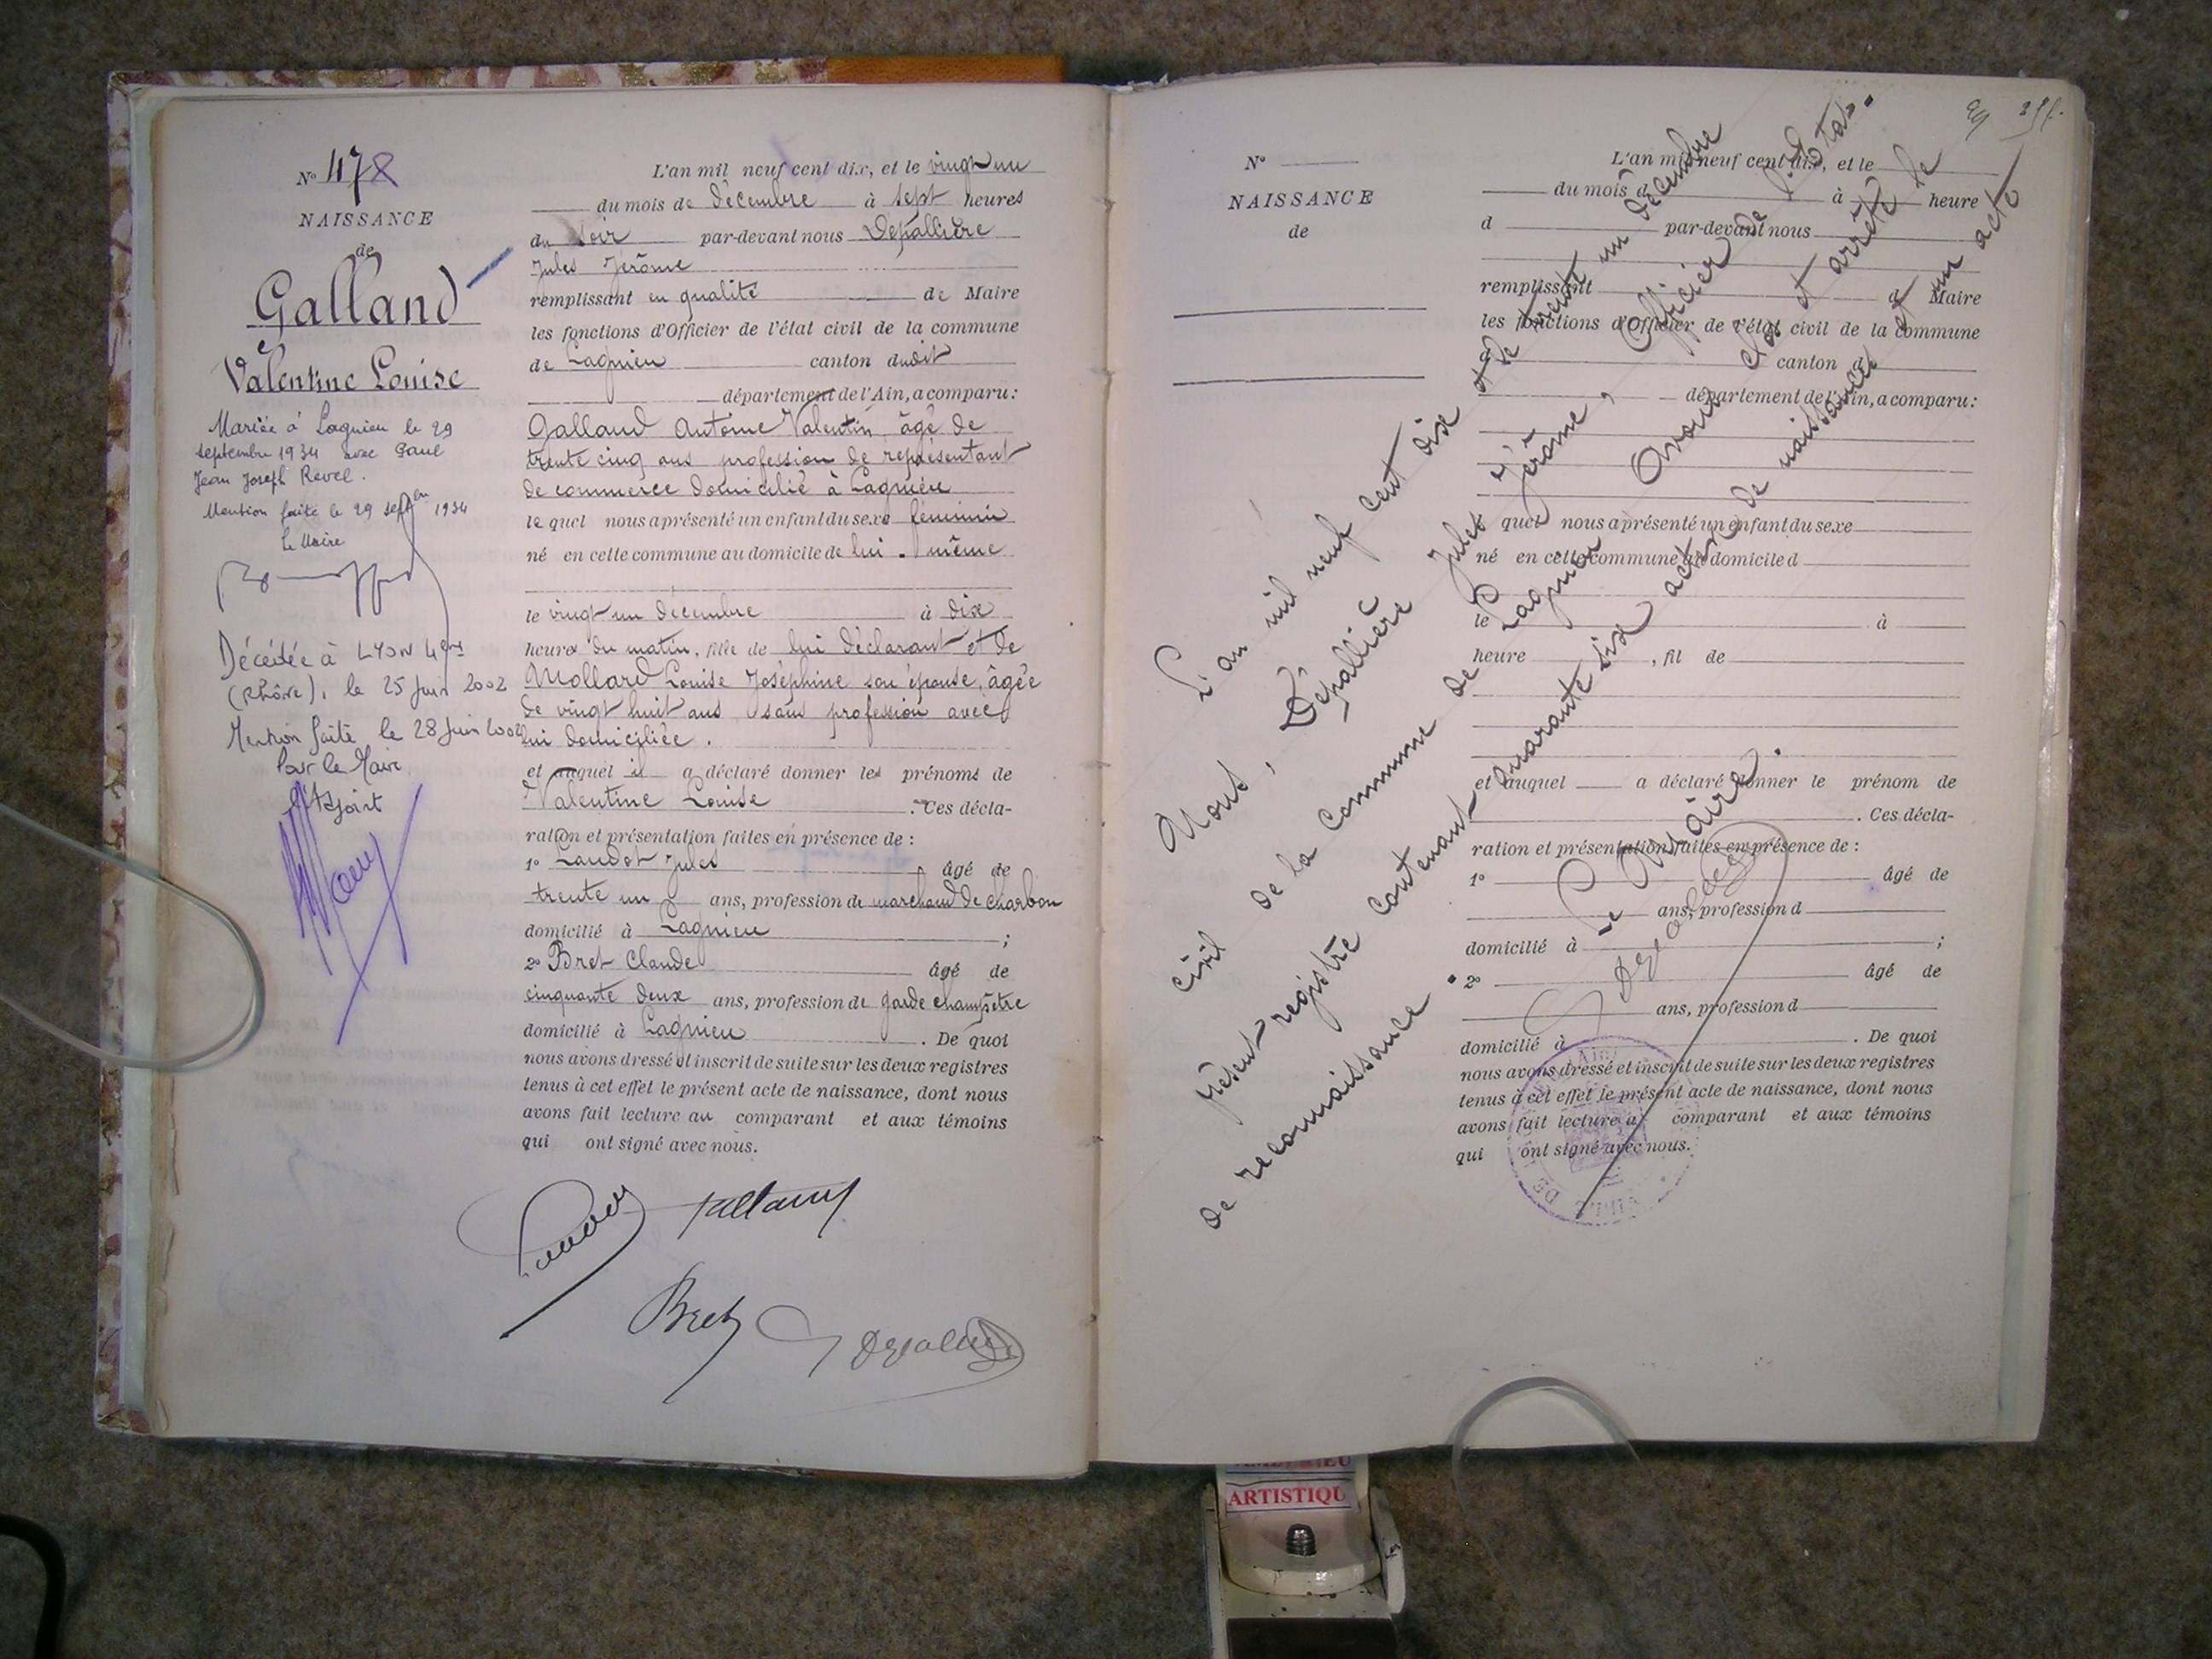 N° 478
NAISSANCE
de
Galland
Valentine Louise
Mariée à Lagnieu le 29
septembre 1934 avec Paul
Jean Joseph Revel.
Mention faite le 29 septembre 1934
Le Maire
Décédée à LYON 4ème
(Rhône), le 25 Juin 2002
Mention faite le 28 Juin 2002
Pour le Maire
L'Adjoint
L'an mil neuf cent dix, et le vingt un
du mois de décembre à sept heures
du soir par-devant nous Dépallière
Jules Jérôme
remplissant en qualité de Maire
les fonctions d'Officier de l'état civil de la commune
de Lagnieu canton dudit
département de l'Ain, a comparu:
Galland Antoine Valentin âgé de
trente cinq ans profession de représentant
de commerce domicilié à Lagnieu
le quel nous a présenté un enfant du sexe féminin
né en cette commune au domicile de lui même
le vingt un décembre à dix
heures du matin, fille de lui déclarant et de
Mollard Louise Joséphine son épouse, âgée
de vingt huit ans sans profession avec
lui domiciliée.
et auquel il a déclaré donner les prénoms de
Valentine Louise . Ces décla-
ration et présentation faites en présence de :
1° Laudot Jules âgé de
trente un ans, profession de marchand de charbon
domicilié à Lagnieu ;
2° Bret Claude âgé de
cinquante deux ans, profession de garde champêtre
domicilié à Lagnieu . De quoi
nous avons dressé et inscrit de suite sur les deux registres
tenus à cet effet le présent acte de naissance, dont nous
avons fait lecture au comparant et aux témoins
qui ont signé avec nous.
Galland
Bret
N°
NAISSANCE
de
L'an mil neuf cent dix, et le
du mois d à heure
d par-devant nous
remplissant d Maire
les fonctions d'Officier de l'état civil de la commune
d canton d
département de l'Ain, a comparu:
quel nous a présenté un enfant du sexe
né en cette commune au domicile d
le à
heure , fil de
et auquel a déclaré donner le prénom de
. Ces décla-
ration et présentation faites en présence de :
1° âgé de
ans, profession d
domicilié à ;
2° âgé de
ans, profession d
domicilié à . De quoi
nous avons dressé et inscrit de suite sur les deux registres
tenus à cet effet le présent acte de naissance, dont nous
avons fait lecture a comparant et aux témoins
qui ont signé avec nous.
L'an mil neuf cent dix et le trente un décembre
Nous, Dépallière Jules Jérôme, Officier de l'Etat
civil de la commune de Lagnieu Avons clos et arrêté le
présent registre contenant quarante six actes de naissances et un acte
de reconnaissance.
Le Maire.
ARTISTIQU